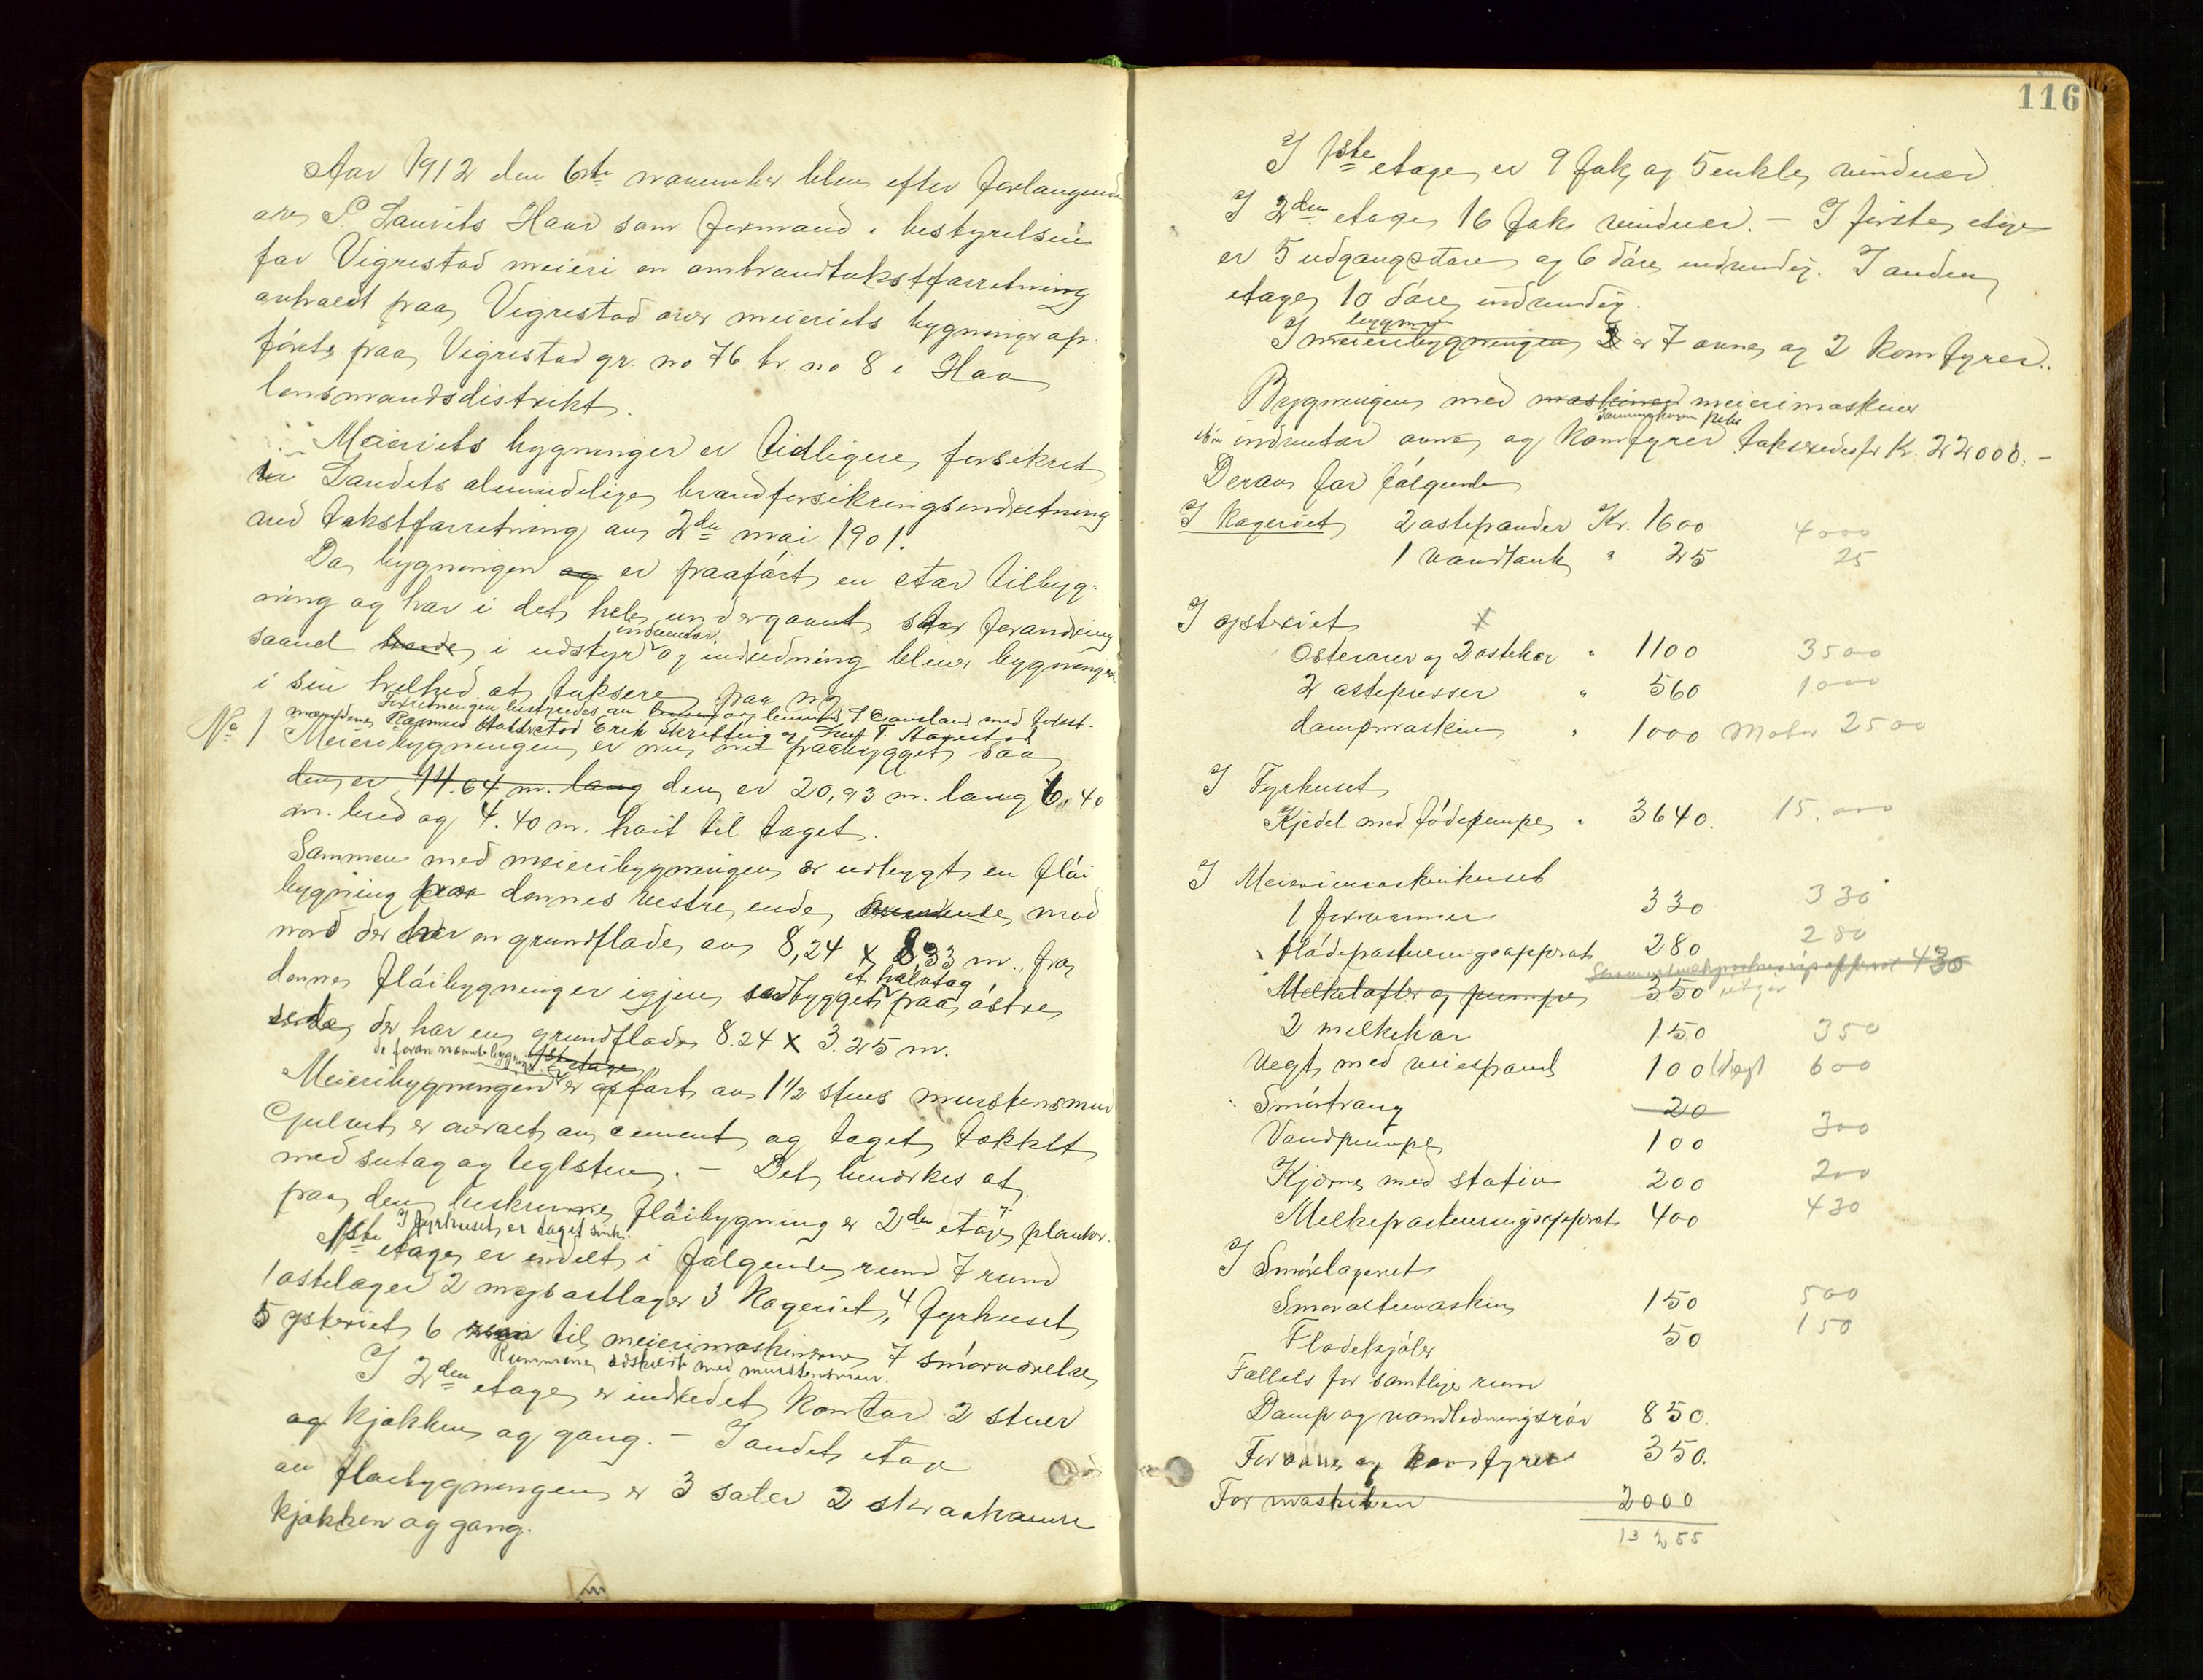 Aar 1912 den 6te november blev efter forlangende
av P. Laurits Haar som formand i bestyrelsen
for Vigrestad meieri en ombrandtakstforretning
avholdt paa Vigrestad over meieriets bygninger op-
førte paa Vigrestad gr. no 76 br. no 8 i Haa
lensmandsdistrikt.
Meieriets bygninger er tidligere forsekret
i Landets almindelige brandforsikringsindretning
ved takstforretning av 2den mai 1901.
Da bygningen og er paaført en stor tilbyg-
ning og har i det hele undergaaet stor forandring
saavel baade i udstyr inventar og indredning bliver bygningen
i sin helhed at taksere paa ny
Forretningen bestyredes av lensmd. med takst-
mændene Rasmus Hattestad Erik Skretting og T. Stavnestad
No 1 Meieribygningen er nu paabygget saa
den er 14.64 m. lang den er 20,93 m. lang 6,40
m. bred og 4.40 m. høit til taget.
Sammen med meieribygningen er udbygt en fløi
bygning paa dennes vestre ende mod
nord der har en grundflade av 8,24 x 8,33 m., fra
denne fløibygninger igjen udbygget et halvtag paa østre
side der har en grundflade 8.24 x 3.25 m.
de foran nevnte bygninger 1ste etage
Meieribygningen er opført av 1½ stens murstensmur
Gulvet er overalt av cement og taget tækket
med sutag og teglsten. - Det bemerkes at
paa den beskrevne fløibygning er 2den etage planker.
I fyrhuset er taget sink.
1ste etage er indelt i følgende rum 7 rum
1 ostelager 2 mysostlager 3 Kogeriet, 4 fyrhuset
5 ysteriet 6 rum til meierimaskinerne 7 smørværelse
Rummene adskildt med murstensmur.
I 2den etage er indredet Kontor 2 stuer
og kjøkken og gang. - I andet etage
av fløibygningen er 3 saler 2 skraakamre
kjøkken og gang.
116
I 1ste etage er 9 fak og 5 enkle vinduer.
I 2den etage 16 fak vinduer. - I første etage
er 5 udgangsdøre og 6 døre indvendig. I anden
etage 10 døre indvendig.
bygningen
I meieribygningen er 7 ovne og 2 komfyrer.
Bygningen med maskiner meierimaskiner
inventar ovne og komfyrer takseredes for Kr. 22000.-
Derav for følgende
I Kogeriet 2 ostepander Kr. 1600 4000
1 vandtank " 25 25
I ysteriet
Ostevarer og 2 ostekar " 1100 3500
2 ostepresser " 560 1000
dampmaskin " 1000 Motor 2500
I Fyrhuset
Kjedel med fødepumpe " 3640. 15.000
I Meierimaskinhuset
1 forvarmer 330 330
fløtepasteuringsapparat 280 280
430
Melketafler og pumpe 350 utgar
2 melkekar 150 350
Vegt med veiespand 100 Vegt 600
Smørtraug 20
Vandpumpe 100 300
Kjærne med stativ 200 200
Melkepasteuringsapparat 400 430
I Smørlageret
Smøreltemaskin 150 500
Flødekjøler 50 150
Fælles for samtlige rum
Damp og vandledningsrør 850.
For ovne og komfyrer 350.
For maskinen 2000
13255